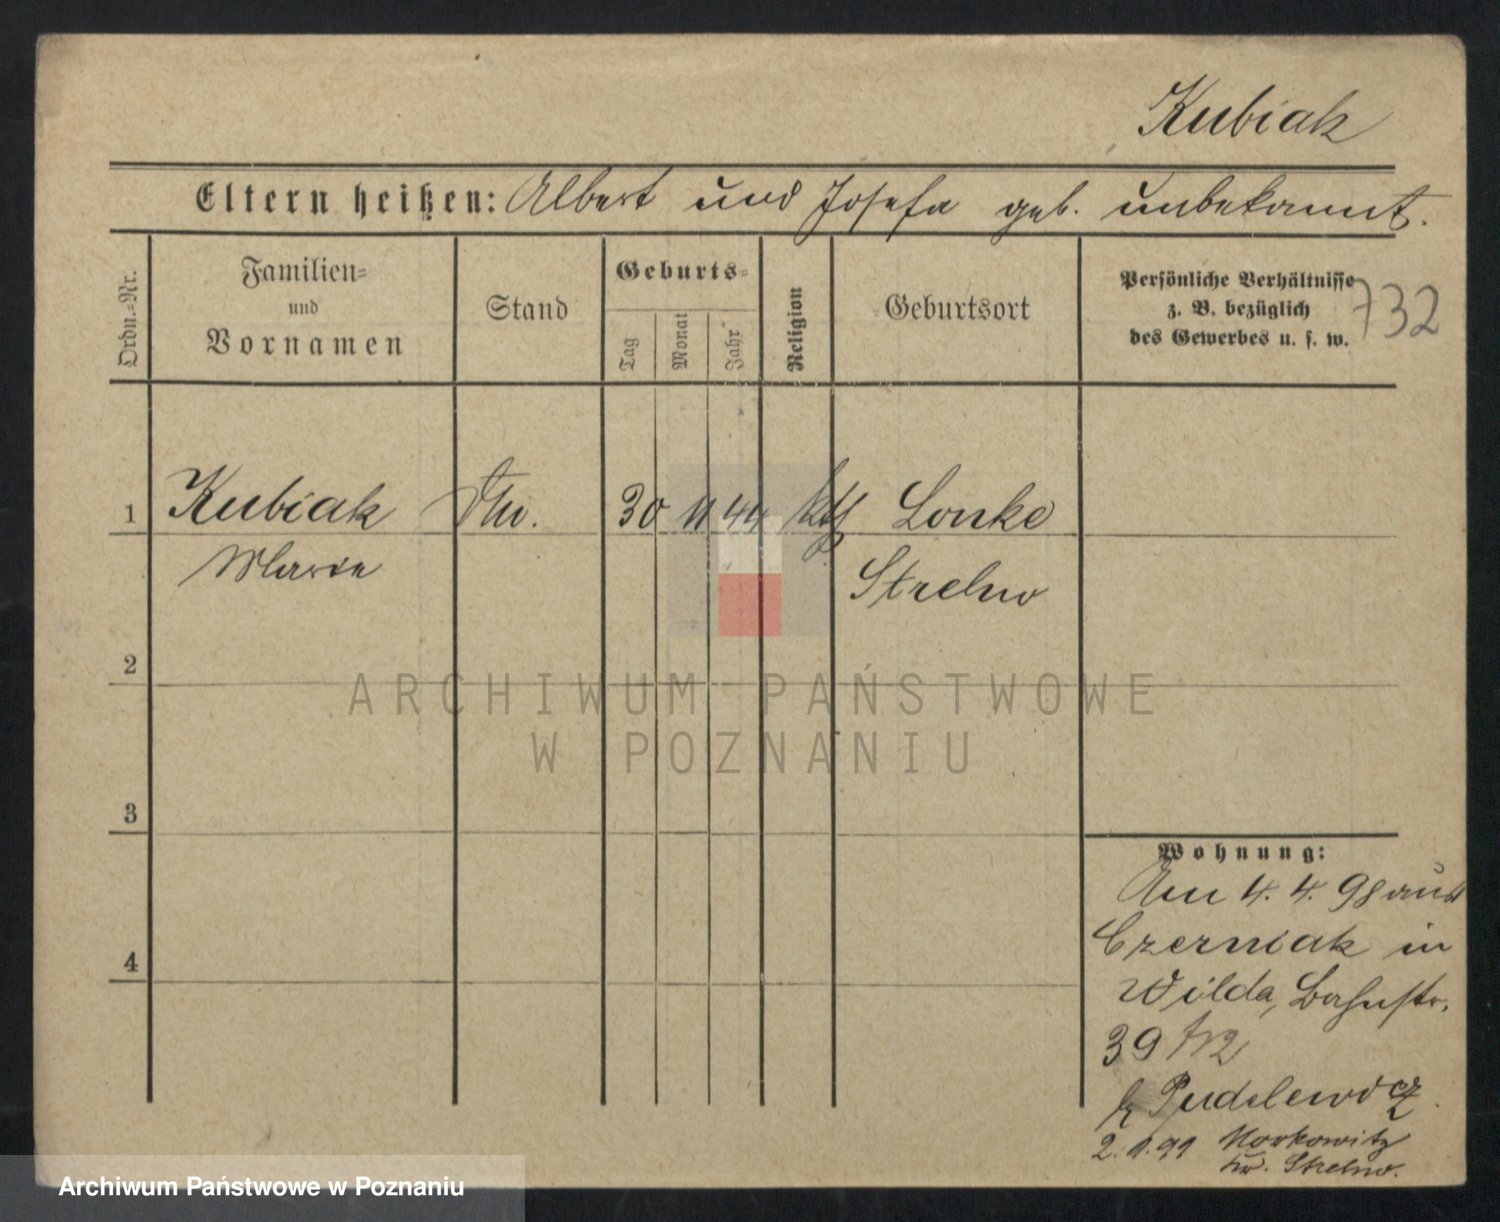 Kubiak
Eltern heißen: Albert und Josefa geb. unbekannt.
Ordn.-Nr.
Familien- und Vornamen
Stand
Geburts-
Tag
Monat
Jahr
Religion
Geburtsort
Persönliche Verhältnisse
z. B. bezüglich
des Gewerbes u. s. w.
732
1 Kubiak 30 11 44 kth Lonke
Marie Strelno
2
3
4
Wohnung:
Am 4. 4. 98 aus
Czerniak in
Wilda, Bahnstr.
39
b Pudelewicz
2. 11. 99 Morkowitz
Kr. Strelno.
ARCHIWUM PAŃSTWOWE
W POZNANIU
Archiwum Państwowe w Poznaniu